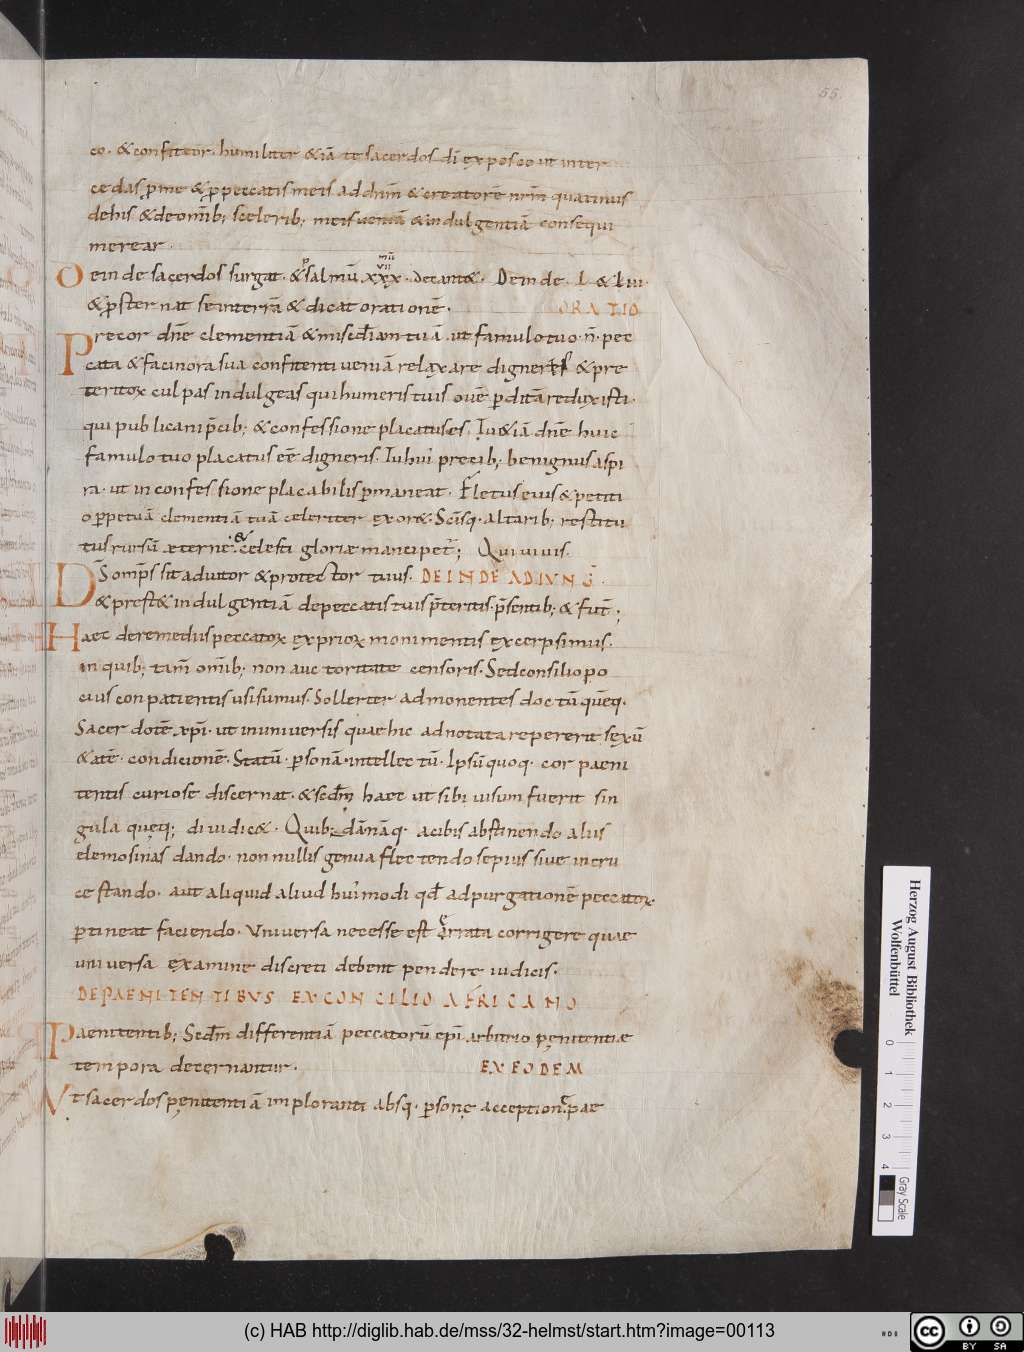 55.
co. & confiteor. humiliter & iā te sacerdos dī exposco ut inter
cedas p me & p peccatis meis ad dnm̄ & creatorē nrm̄ quatinus
de his & de omīb; scelerib; meis ueniā & indulgentiā consequi
merear.
Deinde sacerdos surgat. & psalmū. xxx. decant&. Deinde. L. & Lui.
& p̄sternat se in terrā & dicat orationē. ORATIO
Precor dn̄e clementiā & misc̄diam tuā. ut famulo tuo. n̄. pec
cata & facinora sua confitenti ueniā relaxare digneris & pre
teritoꝝ culpas indulgeas qui humeris tuis ouē pditā reduxisti.
qui publicani p̄cib; & confessione placatus es. Tu &iā dn̄e huic
famulo tuo placatus eē digneris. Tu hui precib; benignus aspi
ra. ut in confessione placabilis pmaneat. Fletus eius & petiti
o ppetuā clementiā tuā celeriter exor&. Sc̄isq. altarib; restitu
tus rursū æterne. & celesti gloriæ mancipet̄; Qui uiuis.
D̄s omp̄s sit adiutor & protector tuus. DEINDE ADIUNḠ.
& prest& indulgentiā de peccatis tuis p̄teritis. p̄sentib; & fut̄;
Haec de remediis peccatoꝝ ex prioꝝ monimentis excerpsimus.
in quib; tam̄ omīb; non auctoritate censoris. Sed consilio po
cius conpatientis usi sumus. Sollerter admonentes doctū quēq.
Sacerdotē xp̄i. ut in uniuersis quae hic adnotata repererit sexū
&atē. condicionē. Statū. psonā. intellectū. Ipsū quoq. cor paeni
tentis curiose discernat. & scd̄m haec ut sibi uisum fuerit sin
gula queq; diiudic&. Quib;dānāq. a cibis abstinendo aliis
elemosinas dando. non nullis genua flectendo sepius siue in cru
ce stando. aut aliquid aliud hui'modi qd̄ ad purgationē peccatoꝝ.
ptineat faciendo. Vniuersa necesse est errata corrigere quae
uniuersa examine discreti debent pendere iudicis.
DE PAENITENTIBVS EX CONCILIO AFRICANO
Paenitentib; Scd̄m differentiā peccatorū ep̄i arbitrio penitentiæ
tempora decernantur. EX EODEM
Vt sacerdos penitentiā imploranti absq. psone acceptione pae
Herzog August Bibliothek
Wolfenbüttel
0 1 2 3 4
Gray Scale
(c) HAB http://diglib.hab.de/mss/32-helmst/start.htm?image=00113
cc BY SA